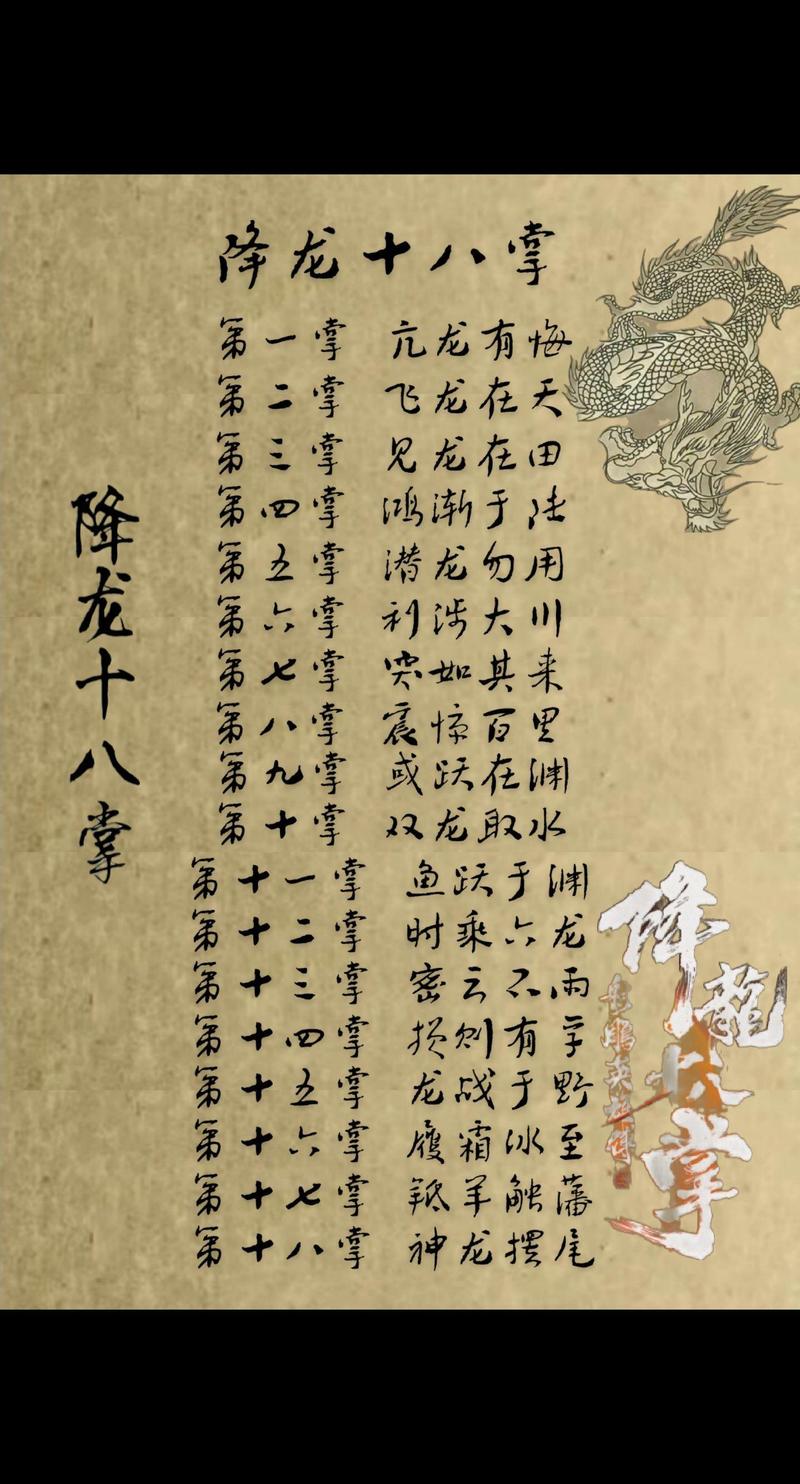 降龙十八掌
第一掌 亢龙有悔
第二掌 飞龙在天
第三掌 见龙在田
第四掌 鸿渐于陆
第五掌 潜龙勿用
第六掌 利涉大川
第七掌 突如其来
第八掌 震惊百里
第九掌 或跃在渊
第十掌 双龙取水
第十一掌 鱼跃于渊
第十二掌 时乘六龙
第十三掌 密云不雨
第十四掌 损则有孚
第十五掌 龙战于野
第十六掌 履霜冰至
第十七掌 羝羊触藩
第十八掌 神龙摆尾
降龙十八掌
降龍
掌